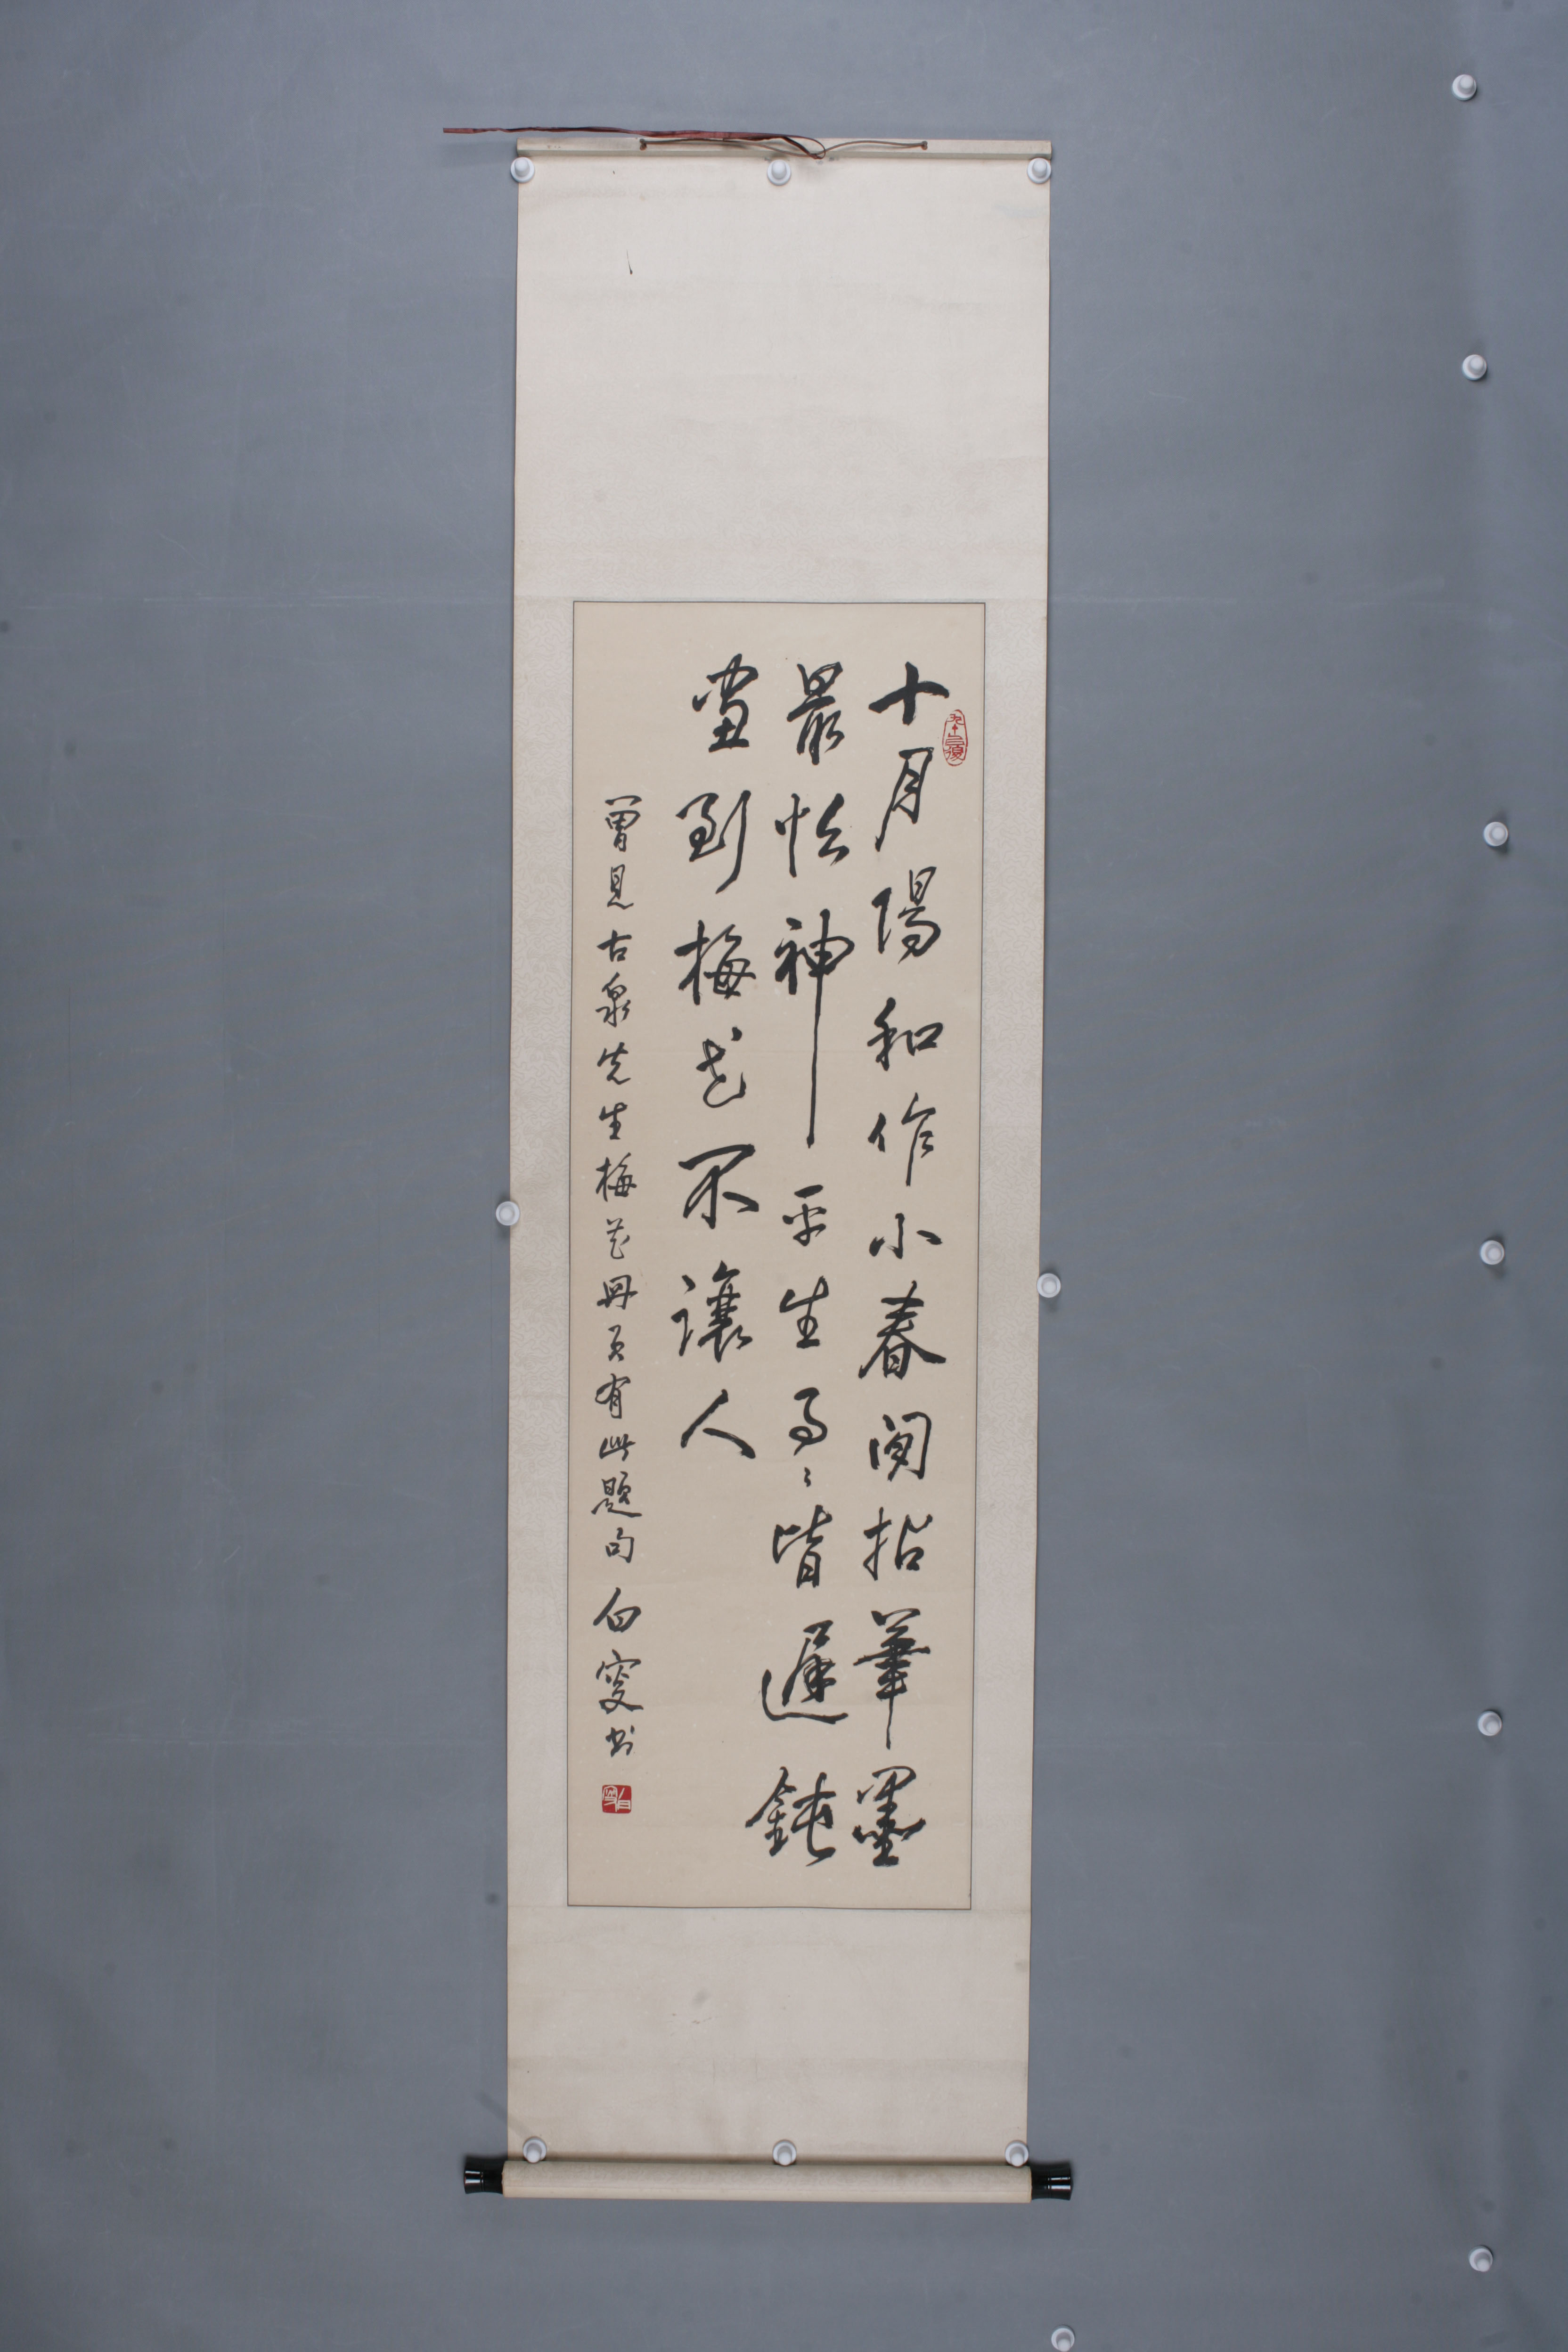 十月陽和作小春閑拈筆墨
最怡神平生事々皆遲鈍
畫到梅花不讓人
曾見古泉先生梅花冊頁有此題句 白雯书